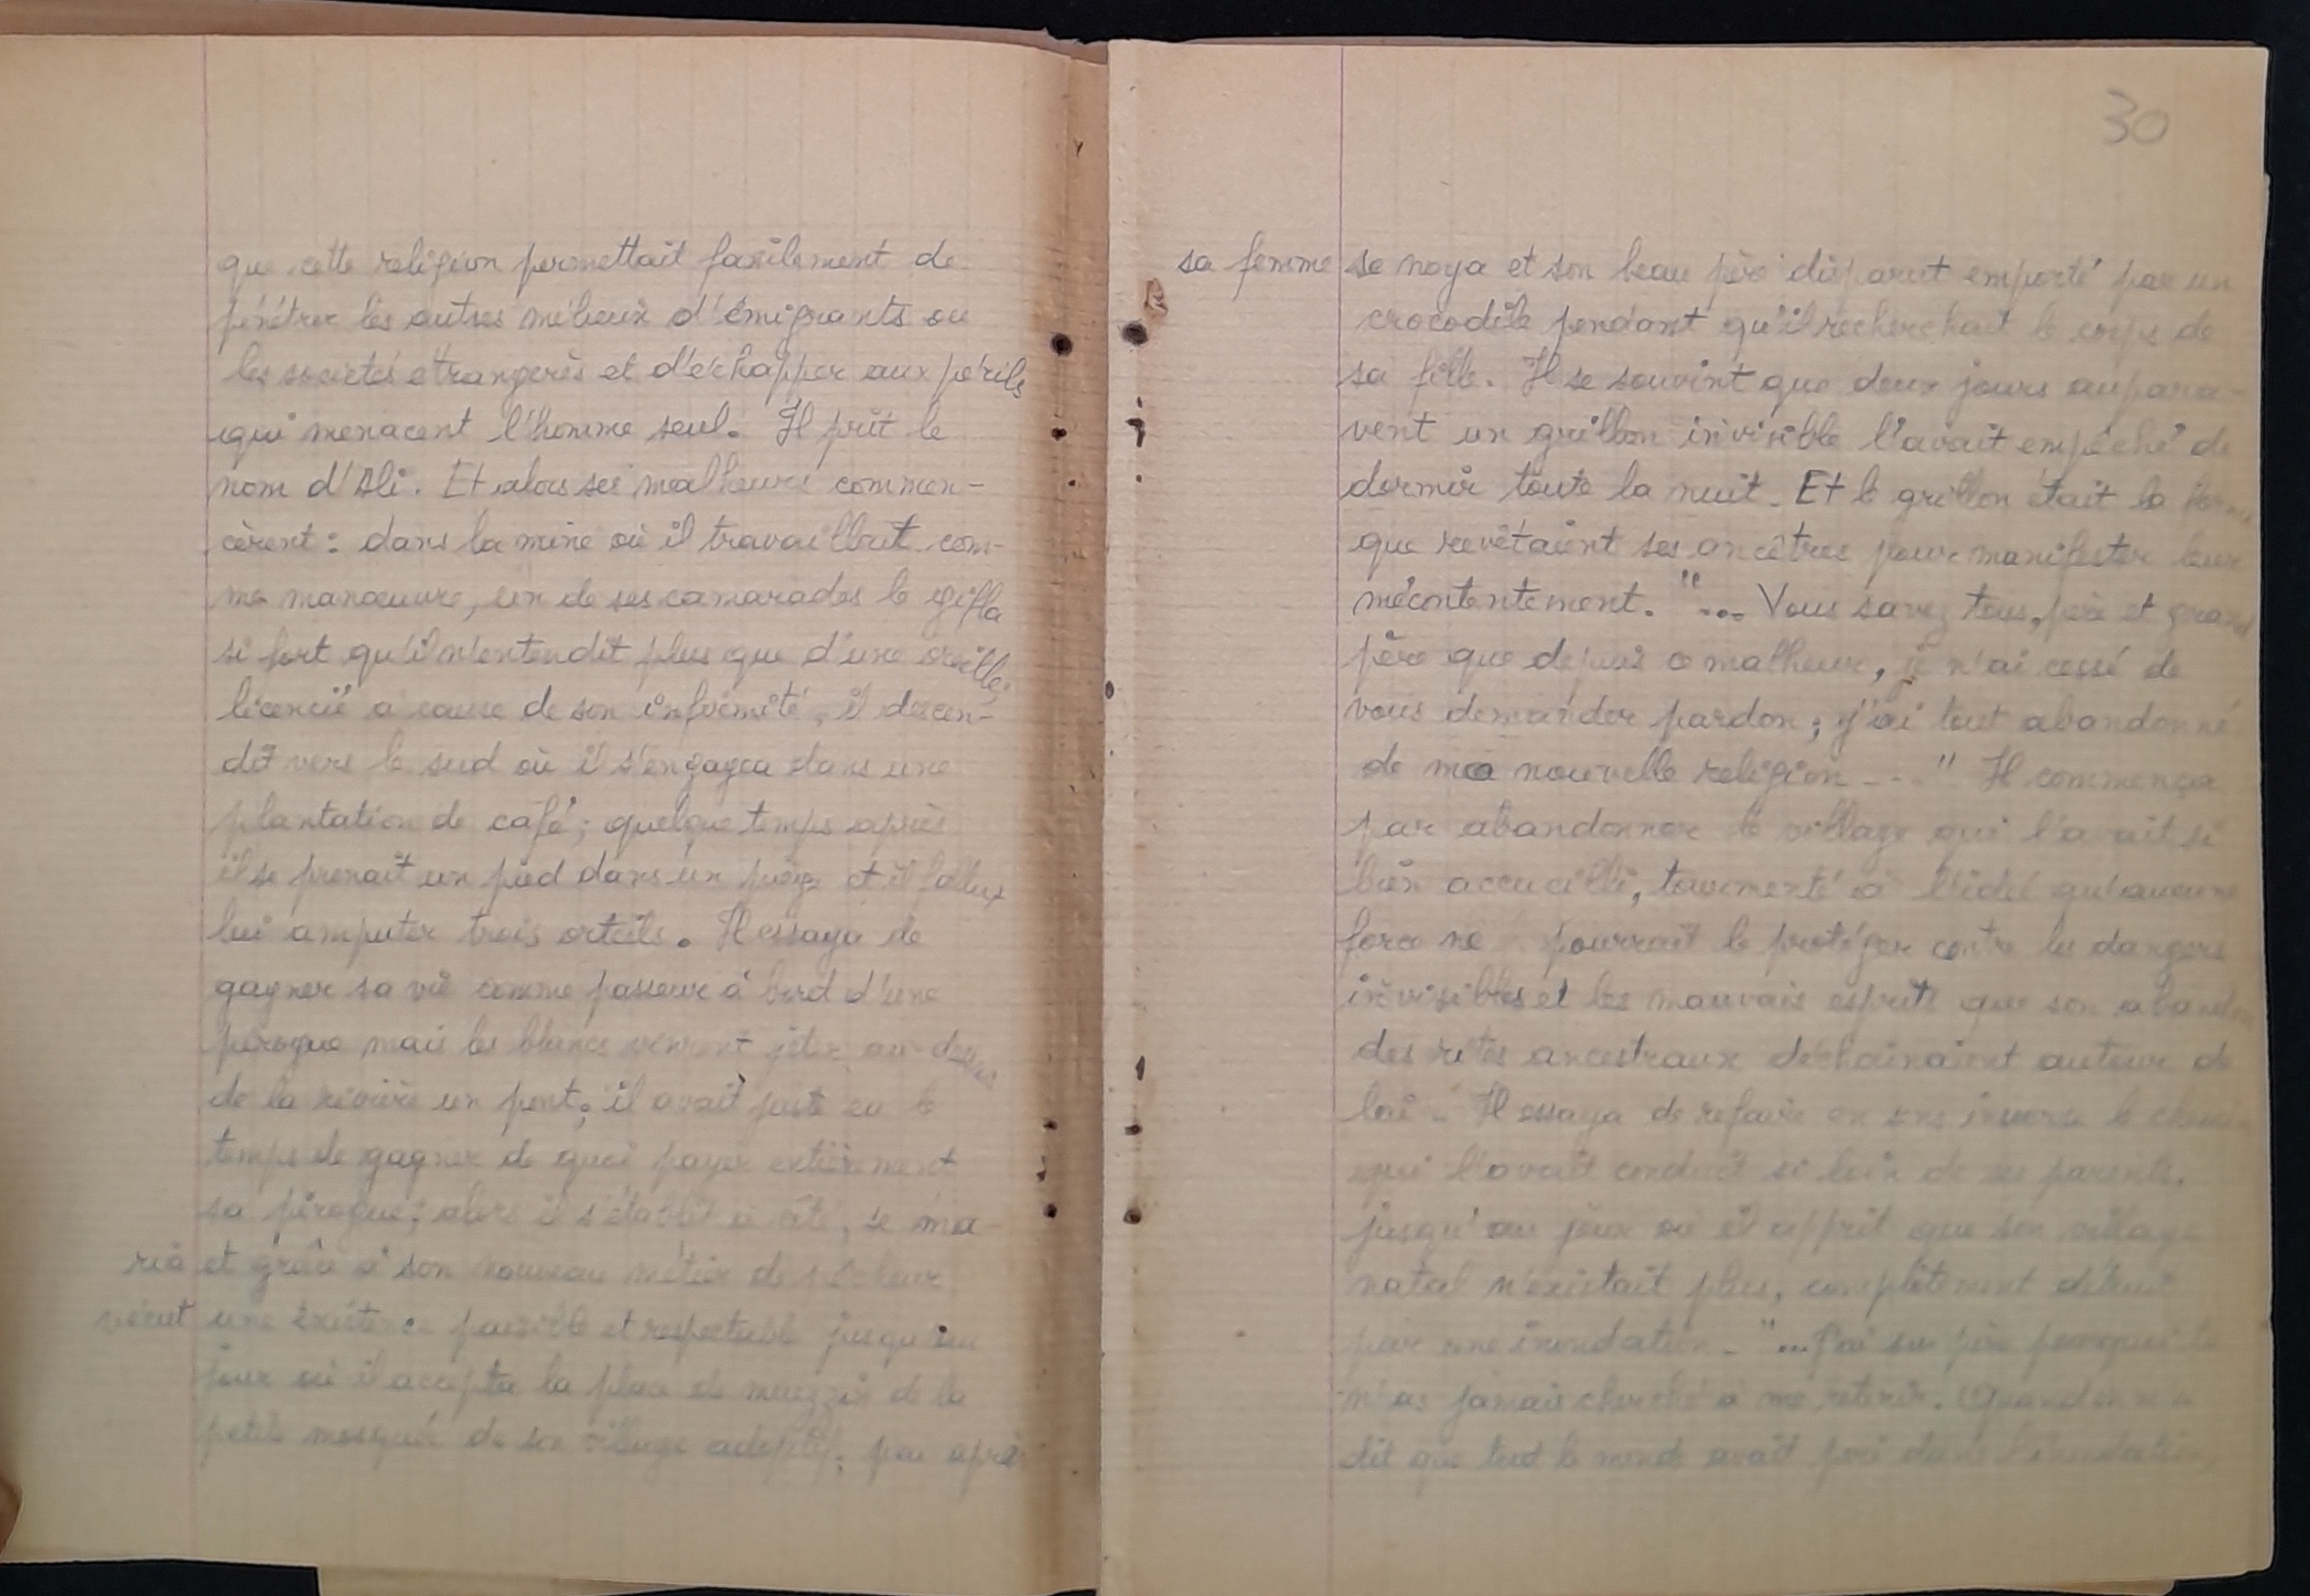 que cette religion permettait facilement de
pénétrer les autres milieux d'émigrants ou
les sociétés étrangères et d'échapper aux périls
qui menacent l'homme seul. Il prit le
nom d'Ali. Et alors ses malheurs commen-
cèrent : dans la mine où il travaillait com-
me manœuvre, un de ses camarades le gifla
si fort qu'il n'entendit plus que d'une oreille ;
licencié à cause de son infirmité, il descen-
dit vers le sud où il s'engagea dans une
plantation de café ; quelque temps après
il se prenait un pied dans un piège et il fallut
lui amputer trois orteils. Il essaya de
gagner sa vie comme passeur à bord d'une
pirogue mais les blancs vinrent jeter au-dessus
de la rivière un pont ; il avait juste eu le
temps de gagner de quoi payer entièrement
sa pirogue ; alors il s'établit à côté, se ma-
ria et grâce à son nouveau métier de pêcheur
vécut une existence paisible et respectable jusqu'au
jour où il accepta la place de muezzin de la
petite mosquée de son village adoptif ; peu après
30
sa femme se noya et son beau père disparut emporté par un
crocodile pendant qu'il recherchait le corps de
sa fille. Il se souvint que deux jours aupara-
vent un grillon invisible l'avait empêché de
dormir toute la nuit. Et le grillon était la forme
que revêtaient ses ancêtres pour manifester leur
mécontentement. "... Vous savez tous, père et grand
père que depuis ce malheur, je n'ai cessé de
vous demander pardon ; j'ai tout abandonné
de ma nouvelle religion ..." Il commença
par abandonner le village qui l'avait si
bien accueilli, tourmenté à l'idée qu'aucune
force ne pourrait le protéger contre les dangers
invisibles et les mauvais esprits que son abandon
des rites ancestraux déchainaient autour de
lui. Il essaya de refaire en sens inverse le chemin
qui l'avait conduit si loin de ses parents,
jusqu'au jour où il apprit que son village
natal n'existait plus, complètement détruit
par une inondation. "... J'ai su père pourquoi tu
n'as jamais cherché à me retenir. Quand on m'a
dit que tout le monde avait péri dans l'inondation,